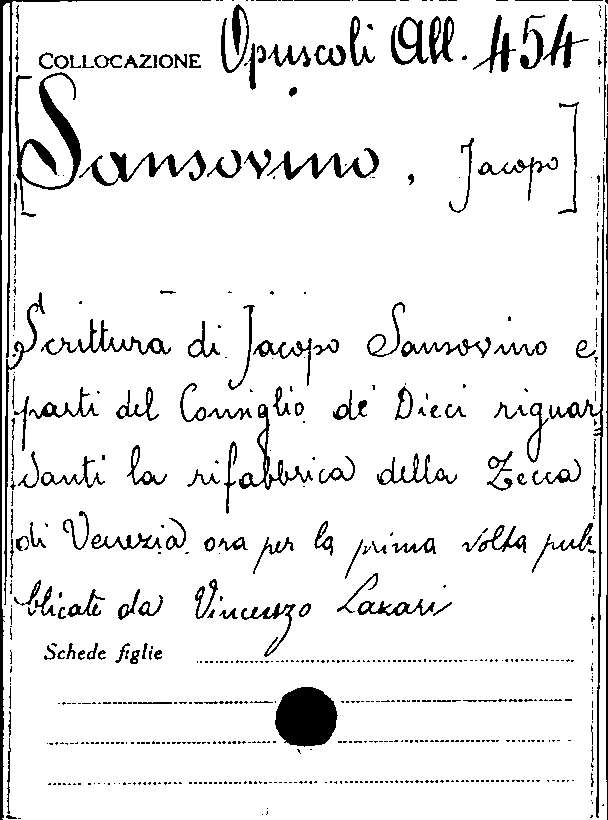 COLLOCAZIONE Opuscoli All. 454
[Sansovino, Jacopo]
Scrittura di Jacopo Sansovino e
parti del Consiglio de' Dieci riguar
danti la rifabbrica della Zecca
di Venezia ora per la prima volta pub-
blicate da Vincenzo Lazari
Schede figlie